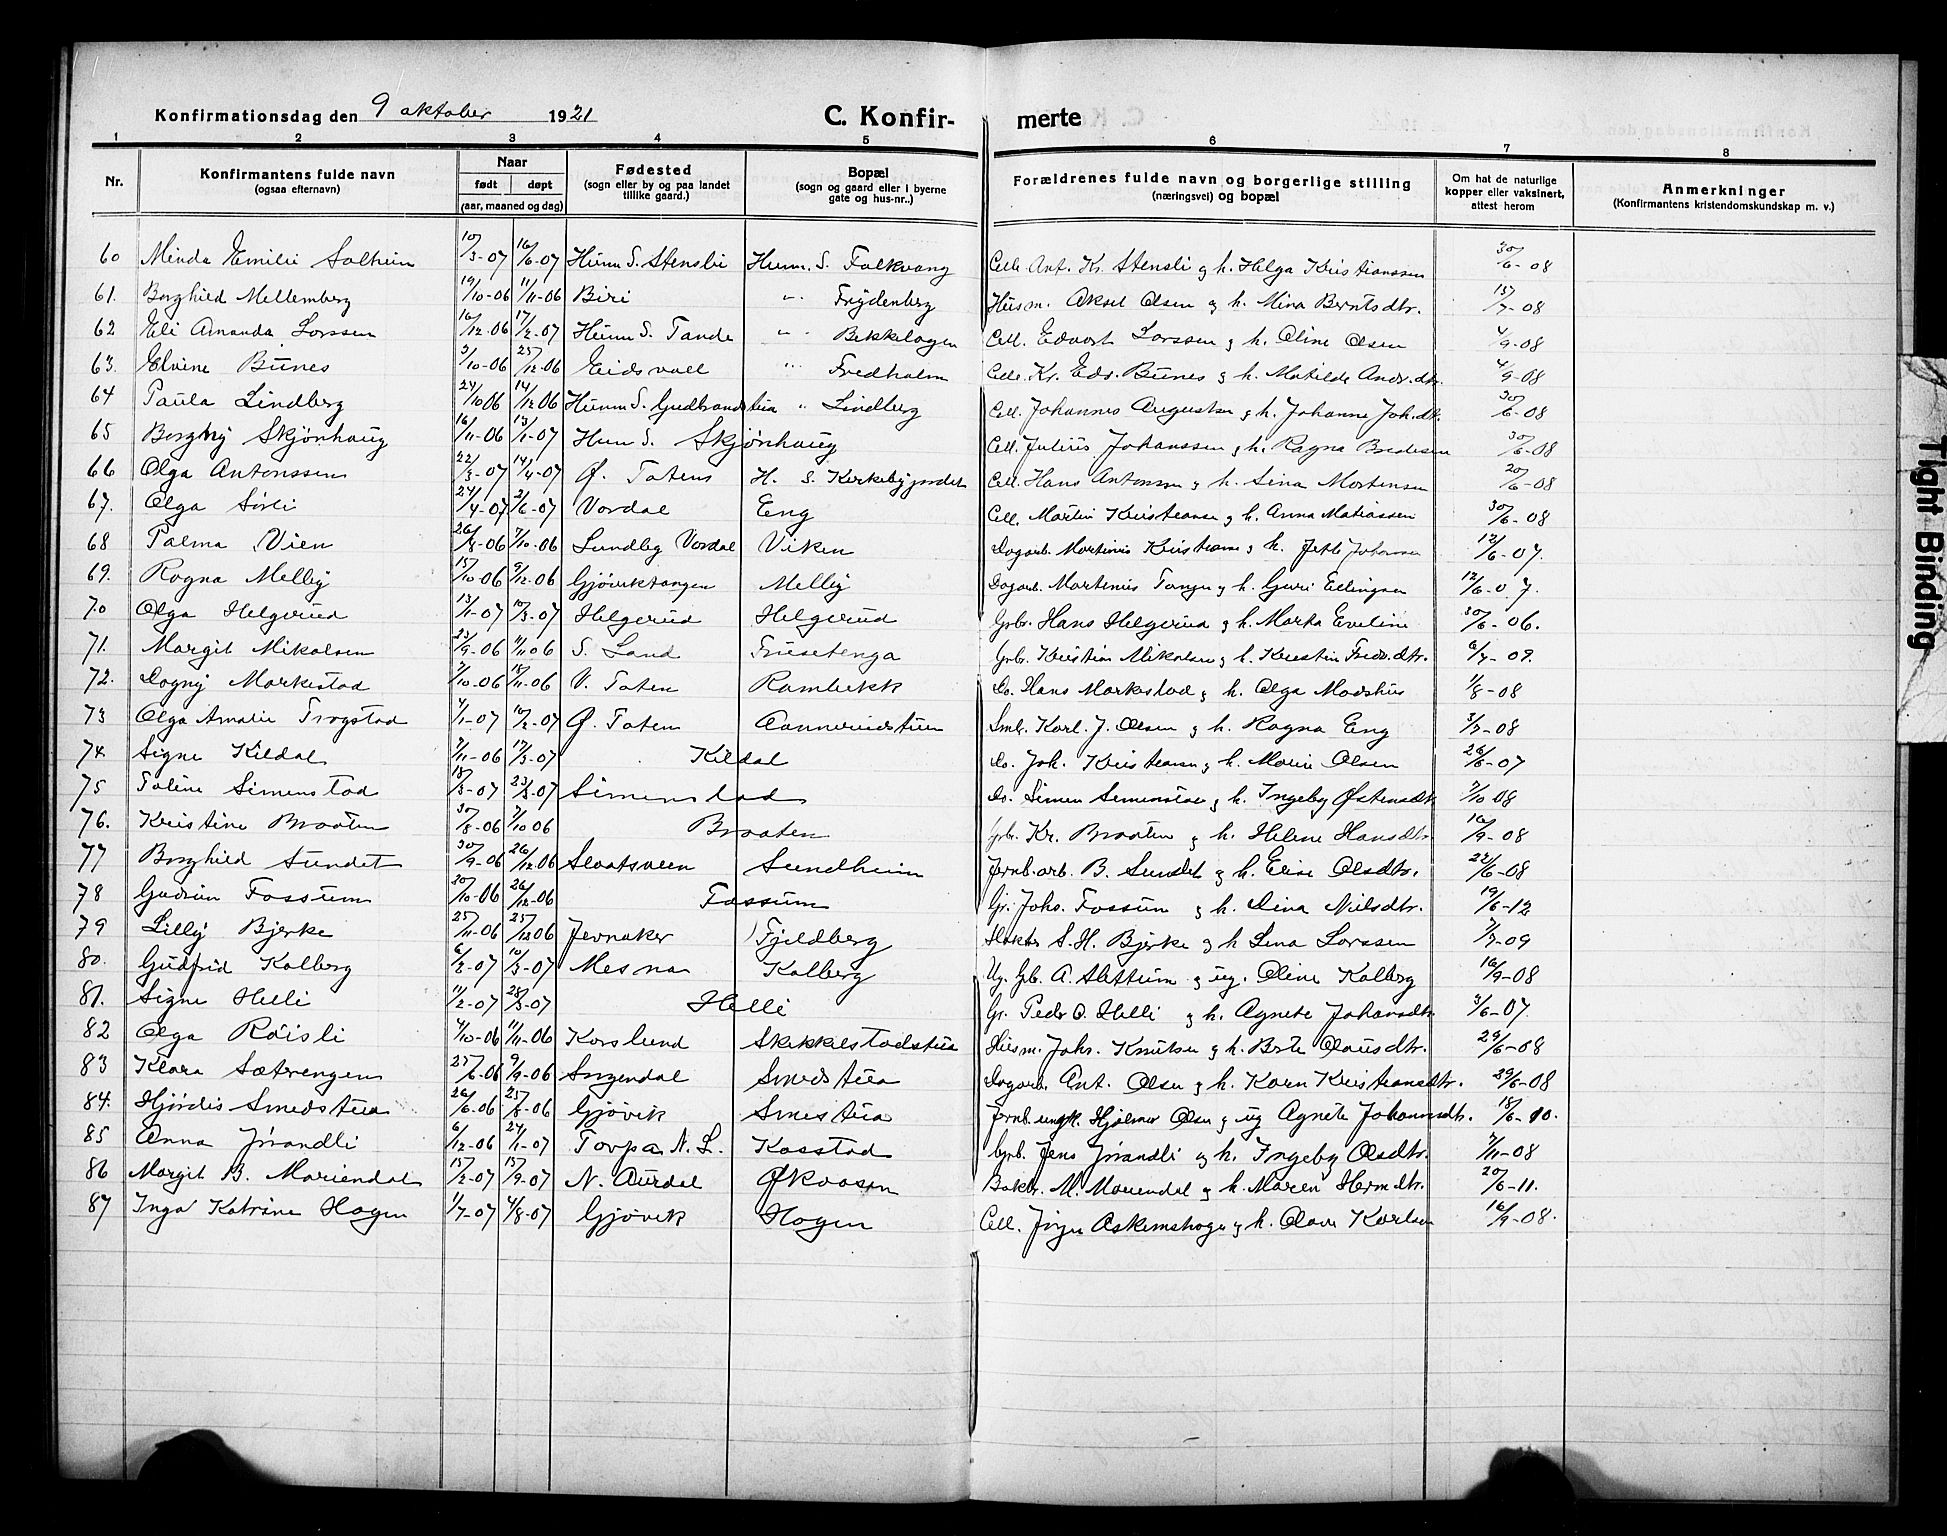 Konfirmationsdag den 9 oktober 1921 C. Konfir- merte
1 2 3 4 5 6 7 8
Nr. Konfirmantens fulde navn (ogsaa efternavn) Naar født døpt (aar, maaned og dag) Fødested (sogn eller by og paa landet tillike gaard.) Bopæl (sogn og gaard eller i byerne gate og hus-nr..) Forældrenes fulde navn og borgerlige stilling (næringsvei) og bopæl Om hat de naturlige kopper eller vaksinert, attest herom Anmerkninger (Konfirmantens kristendomskundskap m. v.)
60 Minda Emilie Solheim 10/3-07 16/6-07 Hunn S. Stensli Hunn. S. Falkvang Cell. Ant. Kr. Stensli og h. Helga Kristianssen 30/6-08
61. Borghild Mellemberg 19/10-06 11/11-06 Biri -"- Frydenberg Husm. Aksel Olsen og h. Mina Berntsdtr. 15/7-08
62 Eli Amanda Larssen 16/12-06 17/2-07 Hunn S. Tande -"- Bekkelagen Cell. Edvart Larssen og h. Oline Olsen 4/9-08
63. Elvine Bünes 3/10-06 25/12-06 Eidsvoll -"- Fredholm Cell. Kr. Edv. Bunes og h. Matilde Andr.dtr. 4/9-08
64 Paula Lindberg 24/10 06 14/12 06 Hunn S. Gudbrandstua " Lindberg Cell. Johannes Augustsen og h. Johanne Joh.dtr. 30/6-08
65 Borghij Skjønhaug 16/11-06 13/1-07 Hunn S. Skjønhaug Cell. Julius Johanssen og h. Ragna Bredesen 30/6-08
66 Olga Antonssen 22/3-07 14/4-07 Ø. Toten H. S. Kirkebyjordet Cell. Hans Antonsen og h. Lina Mortensen 20/6-08
67. Olga Sørli 24/4-07 2/6-07 Vardal Eng Cell. Martin Kristiansen og h. Anna Matiassen 30/6-08
68 Palma Vien 26/8-06 7/10-06 Lundby Vardal Viken Dagarb. Martinus Kristians og h. Jette Johannsen 12/6-07.
69. Ragna Melby 15/10 06 9/12-06 Gjøviktangen Melby Dagarb. Martenius Tangen og h. Guri Erlingsen 12/6-07.
70 Olga Helgerud 13/1-07 10/3-07 Helgerud Helgerud Grbr. Hans Helgerud og h. Marta Eveline 30/6-06.
71. Margit Mikalsen 23/9-06 11/11 06 S. Land Grbr. Kristian Mikalsen og h. Kristin Fredr.dtr. 6/7-09.
72. Dagny Markestad 7/10-06 18/11-06 V. Toten Rambekk Do. Hans Markestad og h. Olga Madshus 1/8-08
73 Olga Amalie Trogstad 4/1-07 10/2-07 Ø. Toten Smb. Karl. J. Olsen og h. Ragna Eng 3/7-08
74 Signe Kildal 7/11-06 17/3-07 Kildal Do. Joh. Kristiansen og h. Marie Olsen 26/6-07
75 Taline Simenstad 18/3-07 23/3-07 Simenstad Do. Simen Simenstad og h. Ingeby Østensdtr. 7/10 08
76. Kristine Braaten 30/8-06 7/10 06 Braaten Grb. Kr. Braaten og h. Helene Hansdtr. 16/9-08
77 Borghild Sundet 30/9-06 26/12-06 Slaatsveen Sundheim Jernb.arb. B. Sundet og h. Elise Olsdtr. 22/6-08
78 Gudrun Fossum 20/10-06 26/12-06 Fossum Gr. Johs. Fossum og h. Dina Nielsdtr. 19/6-12
79 Lilly Bjerke 25/11-06 25/12 06 Jevnaker Fjeldberg Slakter S. H. Bjerke og h Lina Larssen 7/7-09
80. Gudfrid Kalberg 6/2-07 10/3-07 Mesna Kalberg Ug. Grb. A. Slettum og ug. Oline Kalberg 16/9-08
81. Signe Helli 11/2-07 28/3-07 Helli Gr. Peder O. Helli og h. Agnete Johansdtr. 3/6-07.
82 Olga Røisli 4/10-06 11/11-06 Korslund Skikkelstadstua Husm. Johs. Knutsen og h. Berte Olausdtr. 29/6-08
83 Klara Sæterengen 25/6-06 9/9-06 Snertendal Smedstua Dagarb. Ant. Olsen og h. Karn Kristiansdtr. 29/6-08
84. Hjørdis Smedstua 26/6-06 25/8-06 Gjøvik Smestua Jernb.ungk. Hjalmar Olsen og ug Agnete Johannsdtr. 18/6-10.
85 Anna Jørandli 6/12-06 24/1-07 Torpa N. L. Kasstad Grb. Jens Jørandli og h. Ingeby Olsdtr. 7/11-08
86 Margit B. Mariendal 15/2-07 15/9-07 N. Aurdal Baktr. M. Mariendal og h. Maren Hermdtr. 20/6-11.
87 Inga Katrine Hagen 1/7-07 4/8-07 Gjøvik Hagen Cell. Jørgen Askimshagen og h. Olava Karlsen 16/9-08.
Tight Binding